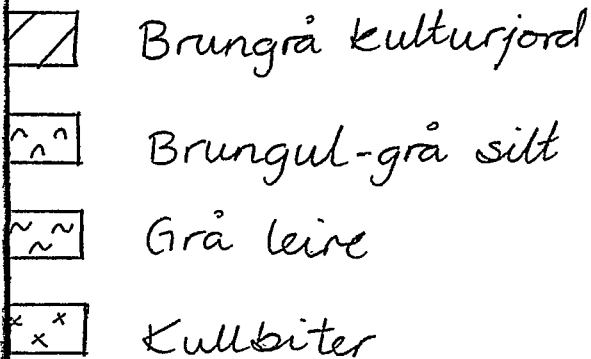 Brungrå kulturjord
Brungul-grå silt
Grå leire
Kullbiter